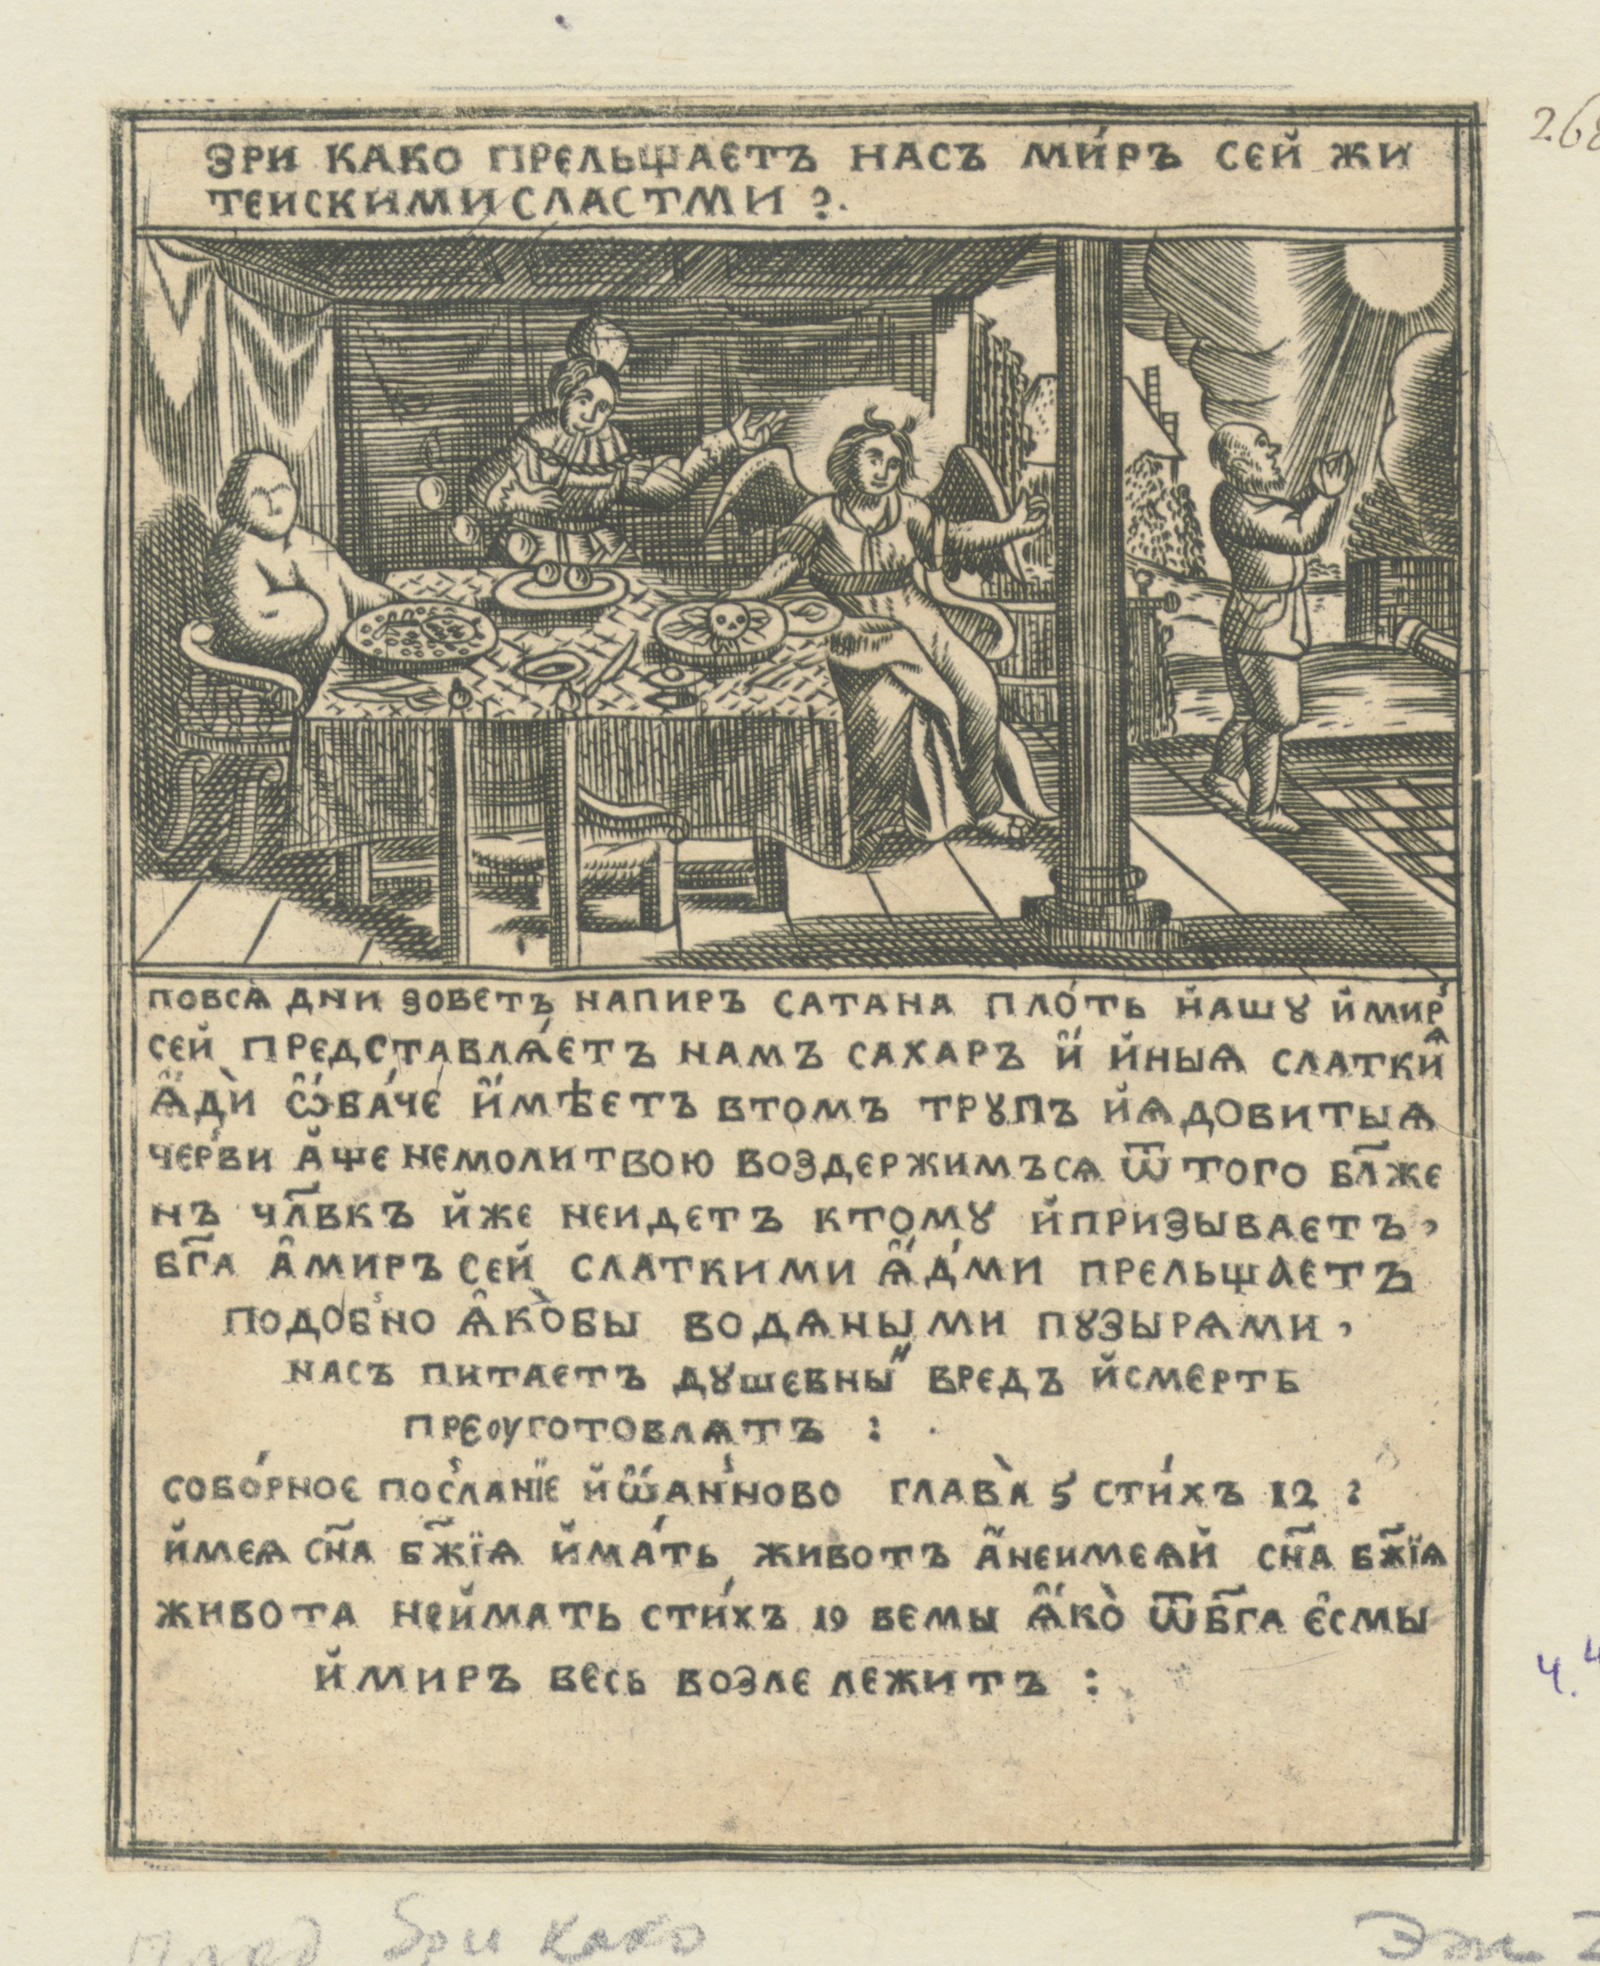 ЗРИ КАКО ПРЕЛЬЩАЕТЪ НАСЪ МИ́РЪ СЕЙ ЖИ
ТЕИСКИМИ СЛАСТМИ ?.
ПОВСѦ ДНИ ЗОВЕТЪ НАПИРЪ САТАНА ПЛО́ТЬ НАШꙊ ЙМИР
СЕЙ ПРЕДСТАВЛѦ́ЕТЪ НАМЪ САХАРЪ И҆́ ЙНЫѦ СЛАТКИѦ
Ѧ҆́Дѝ Ѡ҆́БА́ЧЕ И҆́МѢЕТЪ ВТОМЪ ТРꙊПЪ ЙѦДОВИТЫѦ
ЧЕРВИ А҆́ЩЕ НЕМОЛИТВОЮ ВОЗДЕРЖИМЪСѦ Ѿ ТОГО БЛ҃ЖЕ
НЪ ЧЛ҃ВКЪ ЙЖЕ НЕИДЕТЪ КТОМꙊ ЙПРИЗЫВАЕТЪ,
БГ҃А А҆МИРЪ СЕЙ СЛАТКИМИ Ѧ҆́ДМИ ПРЕЛЬЩАЕТЪ
ПОДОБНО Ѧ҆КОБЫ ВОДѦНЫМИ ПꙊЗЫРѦМИ,
НАСЪ ПИТАЕТЪ ДꙊШЕВНЫИ ВРЕДЪ ЙСМЕРТЬ
ПРЕОУГОТОВЛѦТЪ :
СОБО́РНОЕ ПОСЛАНЇЕ ЙѠ҆́АННОВО ГЛАВА̀ 5 СТИ́ХЪ 12 :
ЙМЕѦ СН҃А БЖ҃ЇѦ ЙМА́ТЬ ЖИВОТЪ А҆НЕИМЕѦЙ СН҃А БЖ҃ЇѦ
ЖИВОТА НЕЙМАТЬ СТИ́ХЪ 19 ВЕМЫ Ѧ҆́КО̀ ѾБГ҃А Е҆СМЫ
ЙМИРЪ ВЕСЬ ВОЗЛЕ ЛЕЖИТЪ :
Зри како